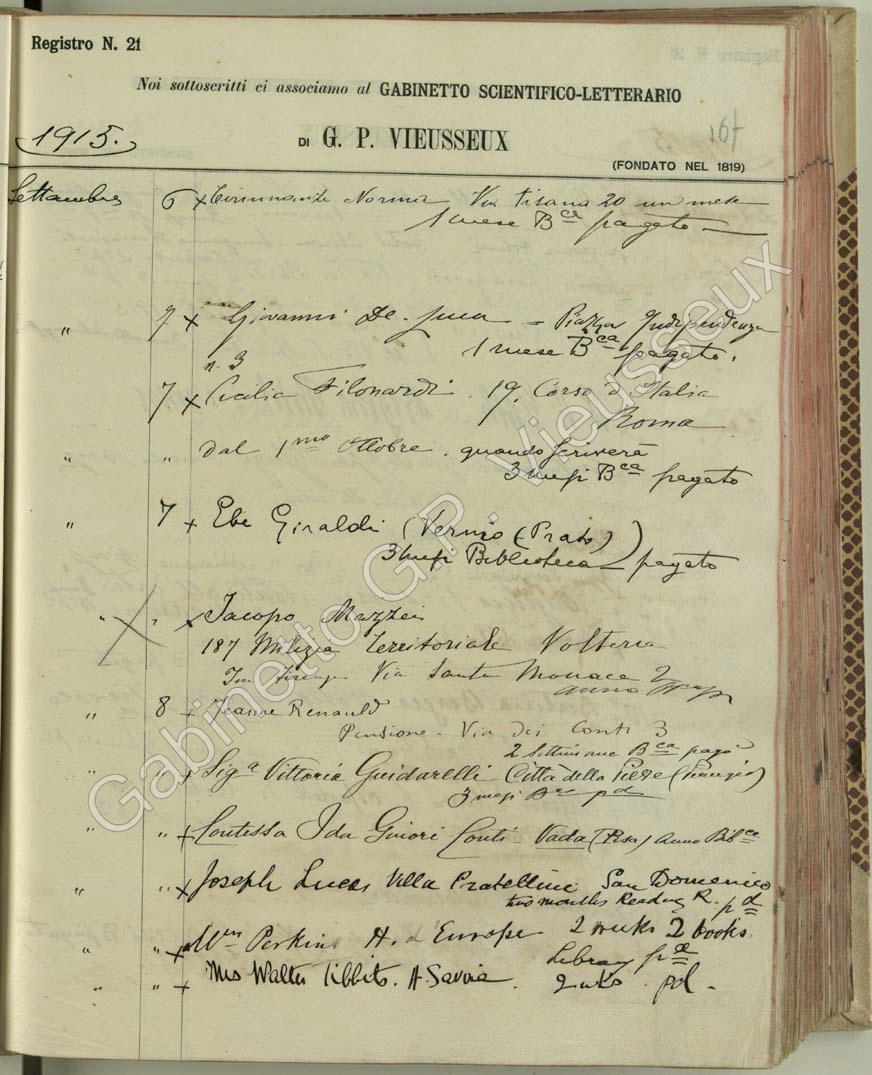 Registro N. 21
Noi sottoscritti ci associamo al GABINETTO SCIENTIFICO-LETTERARIO
DI G. P. VIEUSSEUX
(FONDATO NEL 1819)
1915.
167
Settembre 6 x Norma Via 20 un mese
1 mese Bca pagato
" 7 x Giovanni De Luca - Piazza Indipendenza
n. 3 1 mese Bca pagato.
7 x Cecilia Filonardi. 19. Corso d'Italia
Roma
" " dal 1mo Ottobre. quando scriverà
3 mesi Bca pagato
" 7 x Ebe Giraldi (Vernio (Prato))
3 mesi Biblioteca pagato
" " x Jacopo Mazzei
187 Milizia Territoriale Volterra
Via Santa Monaca 2
anno
" 8 x Jeanne Renauld
Pensione - Via dei Conti 3
2 settimane Bca pagò
" " x Siga Vittoria Guidarelli - Città della Pieve (Perugia)
3 mesi Bca pd
" " x Contessa Ida Ginori Conti Vada (Pisa) Anno Bibca
" " x Joseph Lucas Villa Pratellini San Domenico
two months Reading R. pd
" " x Wm Perkins H. d'Europe 2 weeks 2 books
Library pd
" " x Mrs Walter Tibbits. H. Savoia. 2 wks pd.
Gabinetto G.P. Vieusseux